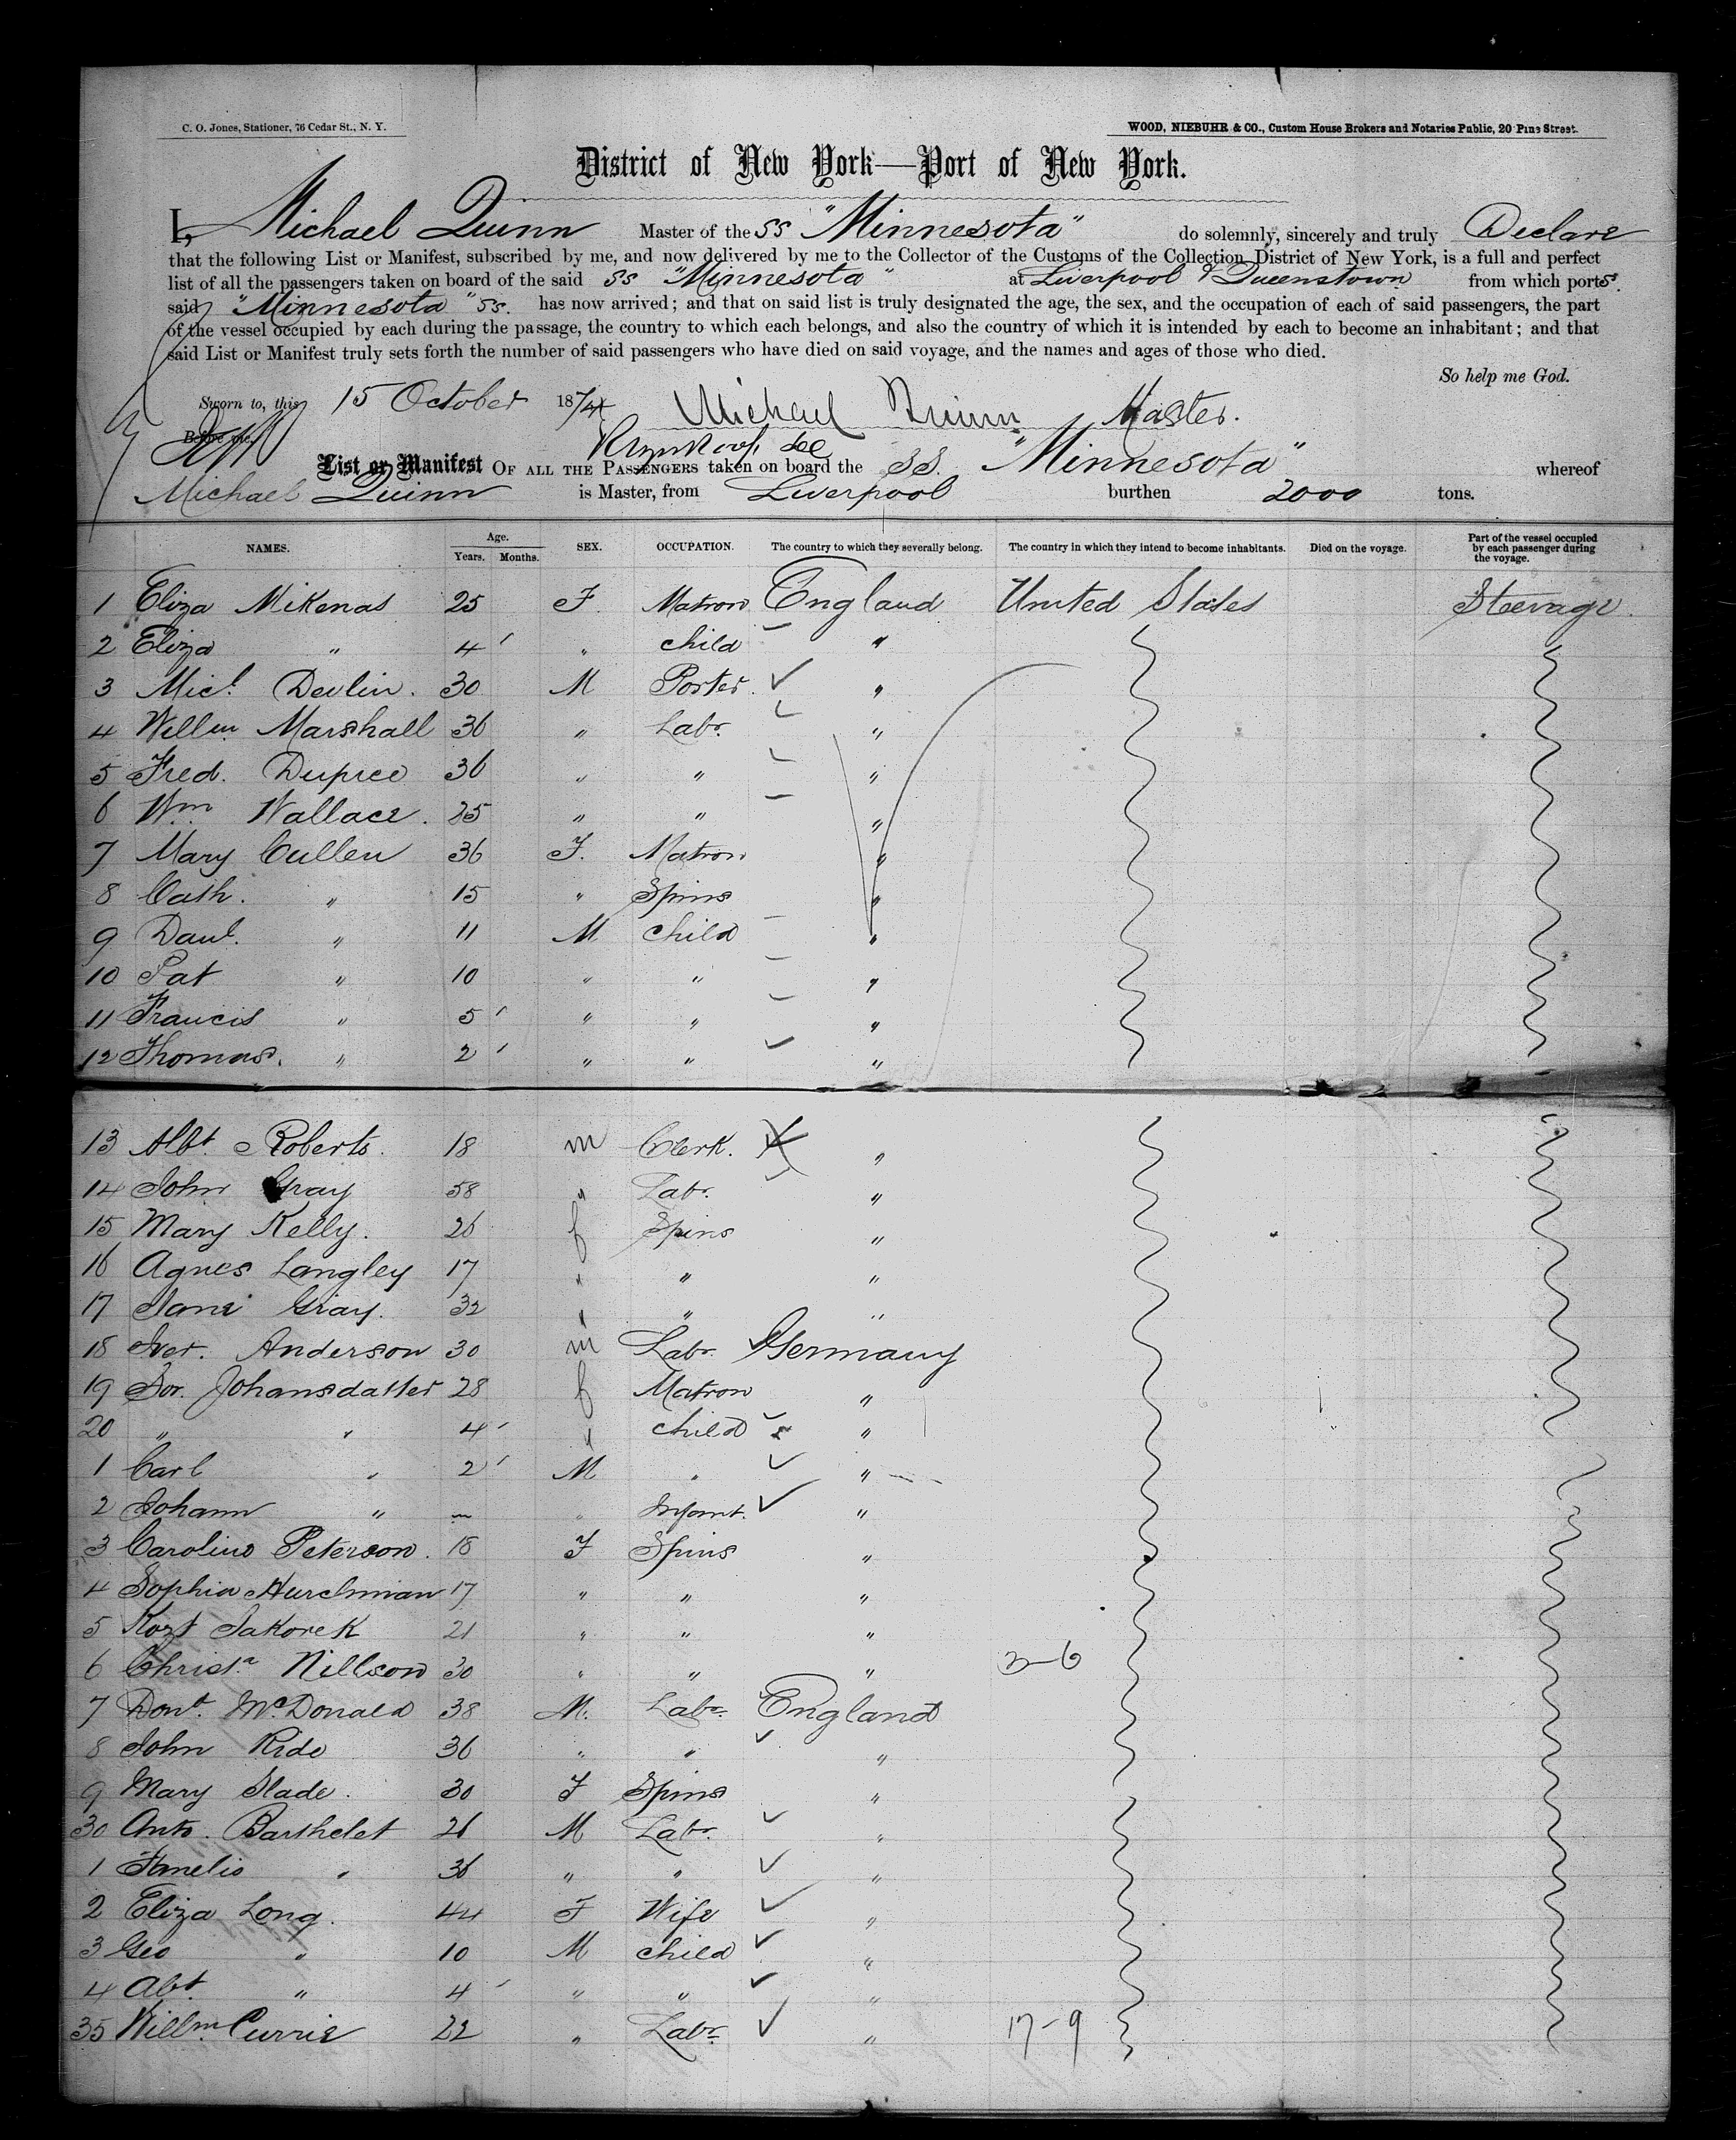 C. O. Jones, Stationer, 76 Cedar St., N. Y.
WOOD, NIEBUHR & CO., Custom House Brokers and Notaries Public, 20 Pine Street.
District of New York—Port of New York.
I, Michael Quinn Master of the SS "Minnesota" do solemnly, sincerely and truly Declare
that the following List or Manifest, subscribed by me, and now delivered by me to the Collector of the Customs of the Collection District of New York, is a full and perfect
list of all the passengers taken on board of the said SS "Minnesota" at Liverpool & Queenstown from which ports.
said "Minnesota" SS. has now arrived; and that on said list is truly designated the age, the sex, and the occupation of each of said passengers, the part
of the vessel occupied by each during the passage, the country to which each belongs, and also the country of which it is intended by each to become an inhabitant; and that
said List or Manifest truly sets forth the number of said passengers who have died on said voyage, and the names and ages of those who died.
So help me God.
Sworn to, this 15 October 1874 Michael Quinn Master.
Before me,
List or Manifest OF ALL THE PASSENGERS taken on board the SS. "Minnesota" whereof
Michael Quinn is Master, from Liverpool burthen 2000 tons.
NAMES. Age. Years. Months. SEX. OCCUPATION. The country to which they severally belong. The country in which they intend to become inhabitants. Died on the voyage. Part of the vessel occupied by each passenger during the voyage.
1 Eliza MiKenas 25 F. Matron England United States Steerage.
2 Eliza " 4 " child "
3 Micl. Devlin. 30 M Porter. "
4 Willm Marshall 36 " Labr. "
5 Fred. Dupree 36 " " "
6 Wm. Wallace. 25 " " "
7 Mary Cullen 36 F. Matron "
8 Cath. " 15 " Spins "
9 Danl. " 11 M child "
10 Pat " 10 " " "
11 Francis " 5 " " "
12 Thomas. " 2 " " "
13 Albt. Roberts. 18 m Clerk. "
14 John Gray 58 " Labr. "
15 Mary Kelly. 26 f Spins "
16 Agnes Langley 17 " " "
17 Jane Gray. 32 " " "
18 Iver. Anderson 30 m Labr. Germany
19 Sor. Johansdatter 28 f Matron "
20 " " 4 " child "
1 Carl " 2 M " "
2 Johann " " Infant. "
3 Caroline Peterson. 18 F Spins "
4 Sophia 17 " " "
5 Kozt Jakorek 21 " " "
6 Christa. Nillson 30 " " " 3-6
7 Dont. McDonald 38 M. Labr. England
8 John Ride 36 " " "
9 Mary Slade. 30 F Spins "
30 Anto. Barthelet 26 M Labr. "
1 " 36 " " "
2 Eliza Long. 44 F Wife "
3 Geo " 10 M child "
4 Abt. " 4 " " "
35 Willm. Currie 22 " Labr. " 17-9